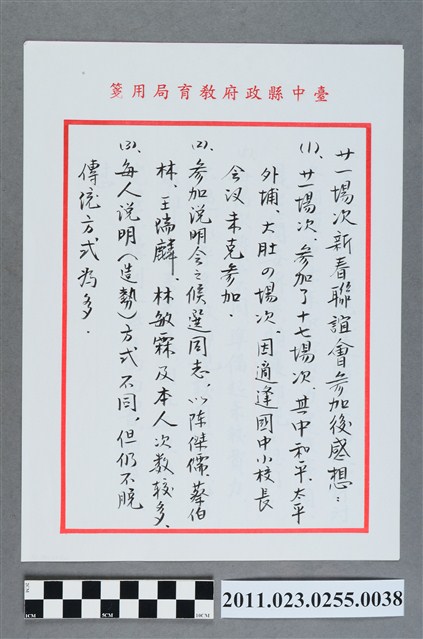 臺中縣政府教育局用箋
廿一場次新春聯誼會參加後感想：
(1)、廿一場次、參加了十七場次、其中和平、太平
外埔、大肚の場次、因適逢國中小校長
会议未克參加．
(2)、參加说明会之候選同志，以陈傑儒、蔡伯
林、王瑞麟、林敏霖及本人次數較多、
(3)、每人说明(造勢)方式不同，但仍不脫
傳统方式为多．
1CM
5CM
10CM
2011.023.0255.0038